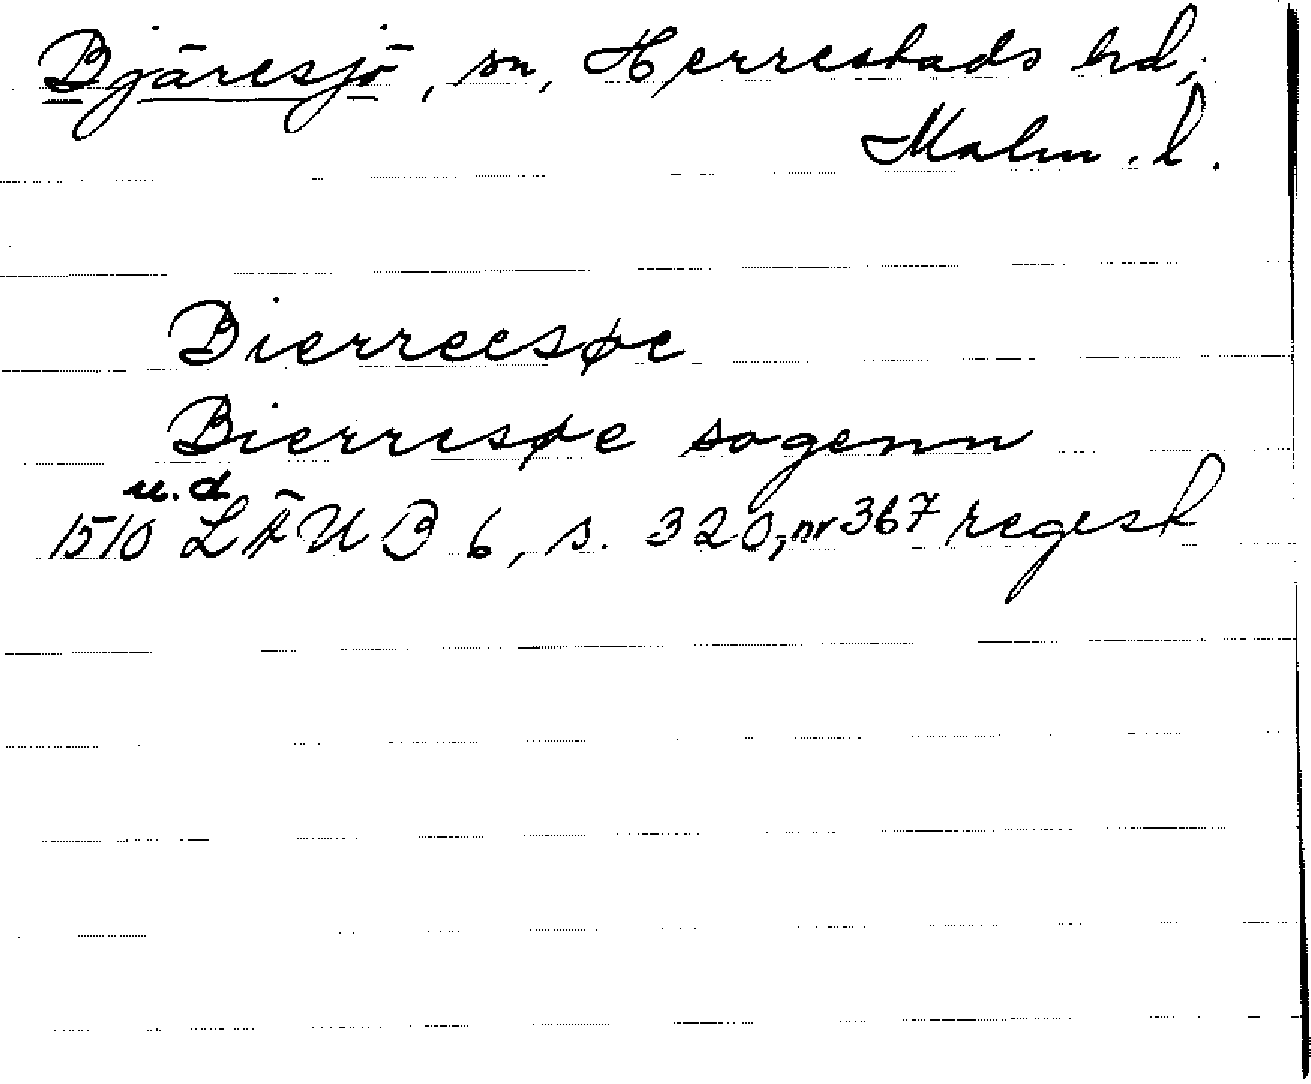 Bjäresjö, sn, Herrestads hd,
Malm. l.
Bierreesøe
Bierresøe sogenn
u.d
1510 LÄUB 6, s. 320, nr 367 regest